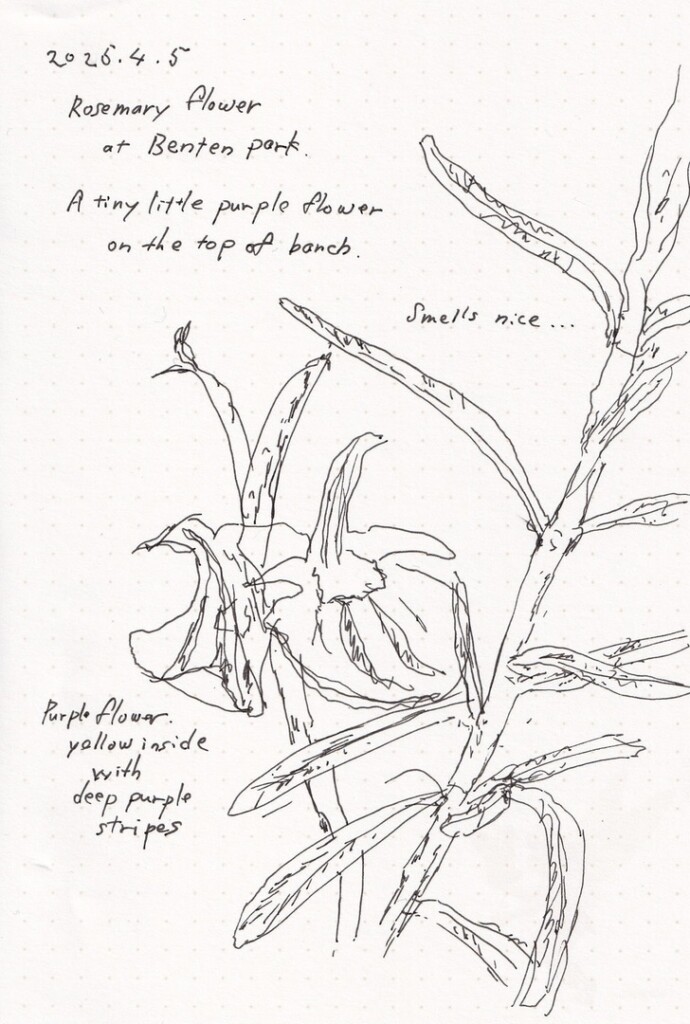 2025.4.5
Rosemary flower
at Benten park.
A tiny little purple flower
on the top of banch.
Smells nice...
Purple flower.
yellow inside
with
deep purple
stripes